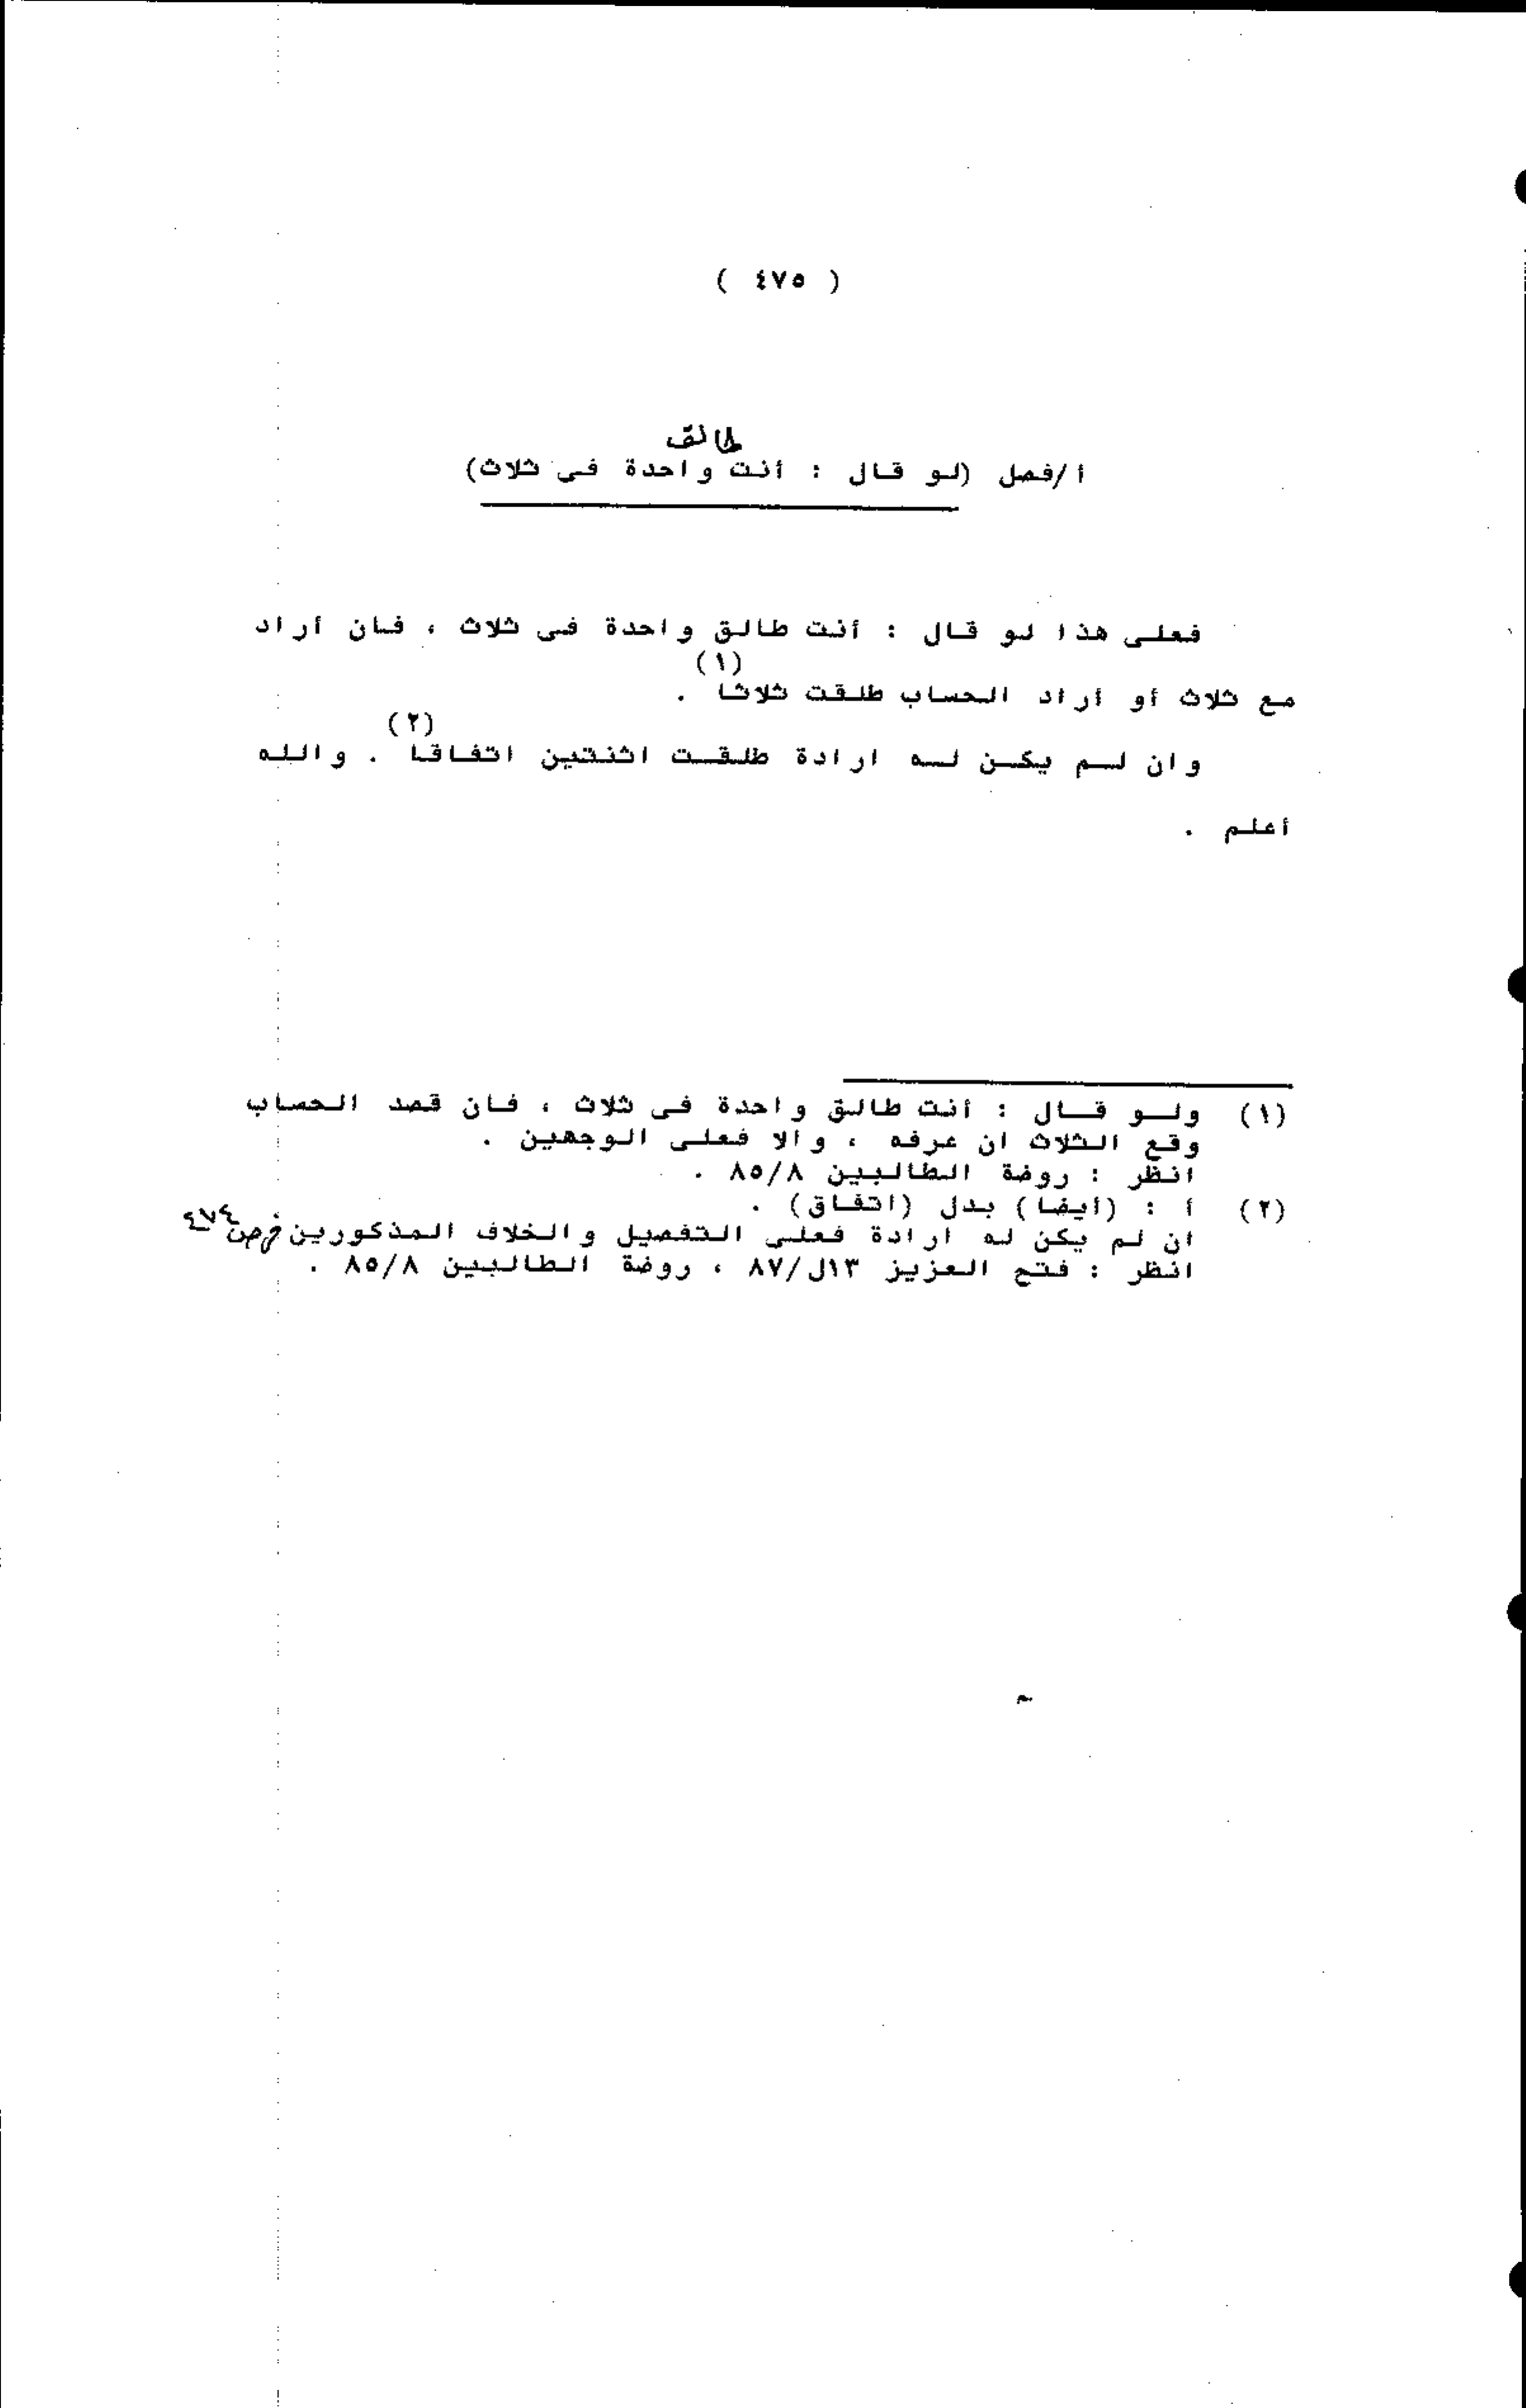 ( ٤٧٥ )
طالق
أ/فصل (لو قال : أنت واحدة فى ثلاث)
فعلى هذا لو قال : أنت طالق واحدة فى ثلاث ، فان أراد
مع ثلاث أو أراد الحساب طلقت ثلاثا (١) .
وان لم يكن له ارادة طلقت اثنتين اتفاقا (٢) . والله
أعلم .
(١) ولو قال : أنت طالق واحدة فى ثلاث ، فان قصد الحساب
وقع الثلاث ان عرفه ، والا فعلى الوجهين .
انظر : روضة الطالبين ٨٥/٨ .
(٢) أ : (أيضا) بدل (اتفاق) .
ان لم يكن له ارادة فعلى التفصيل والخلاف المذكورين في ص ٤٧٤
انظر : فتح العزيز ١٣ل/٨٧ ، روضة الطالبين ٨٥/٨ .